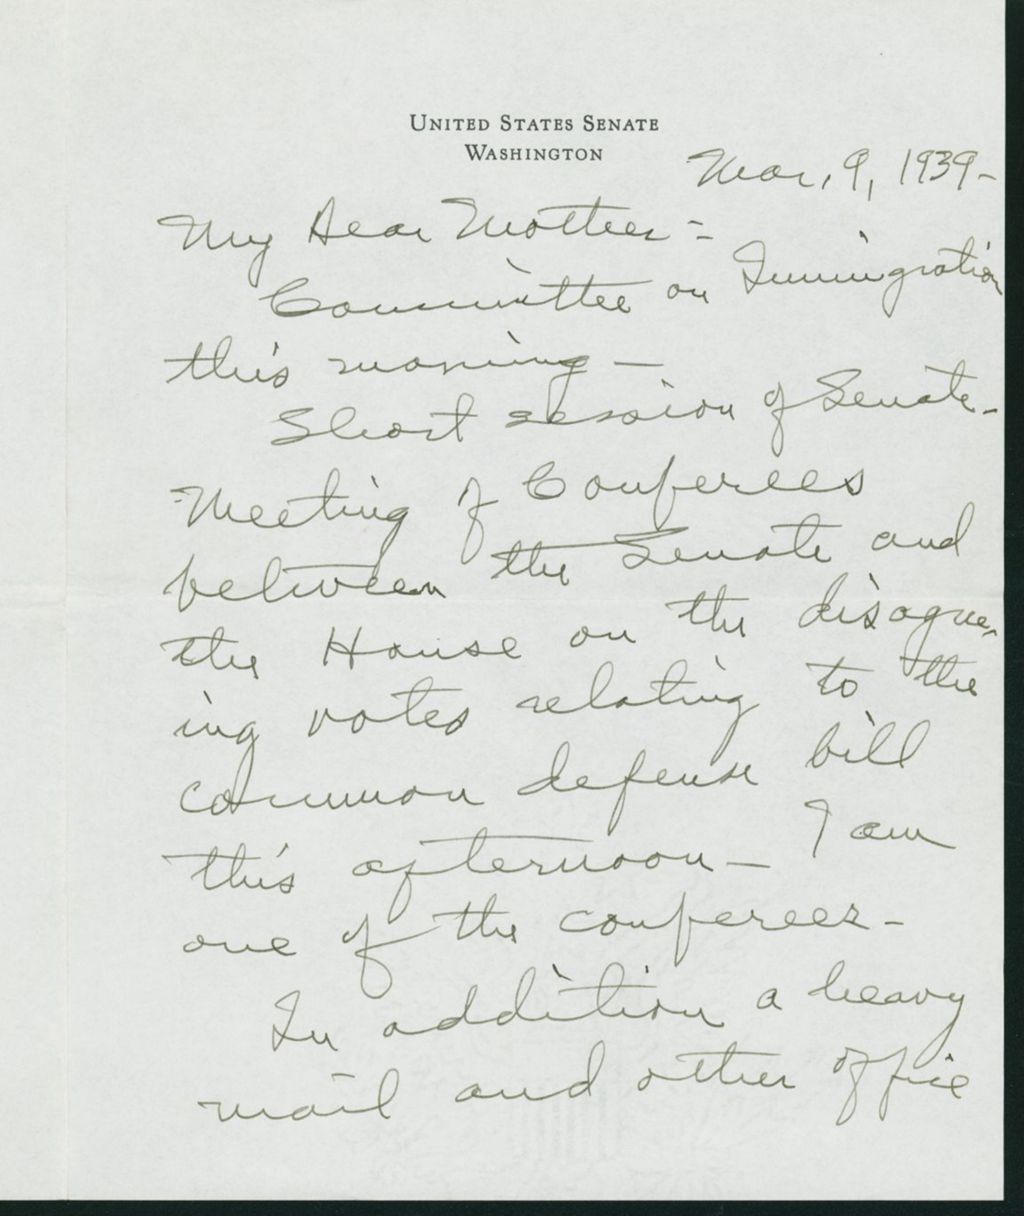 UNITED STATES SENATE
WASHINGTON
Mar, 9, 1939-
My Dear Mother=
Committee on Immigration
this morning -
Short session of Senate-
Meeting of Conferees
between the Senate and
the House on the disagree-
ing votes relating to the
common defense bill
this afternoon - I am
one of the conferees-
In addition a heavy
mail and other office